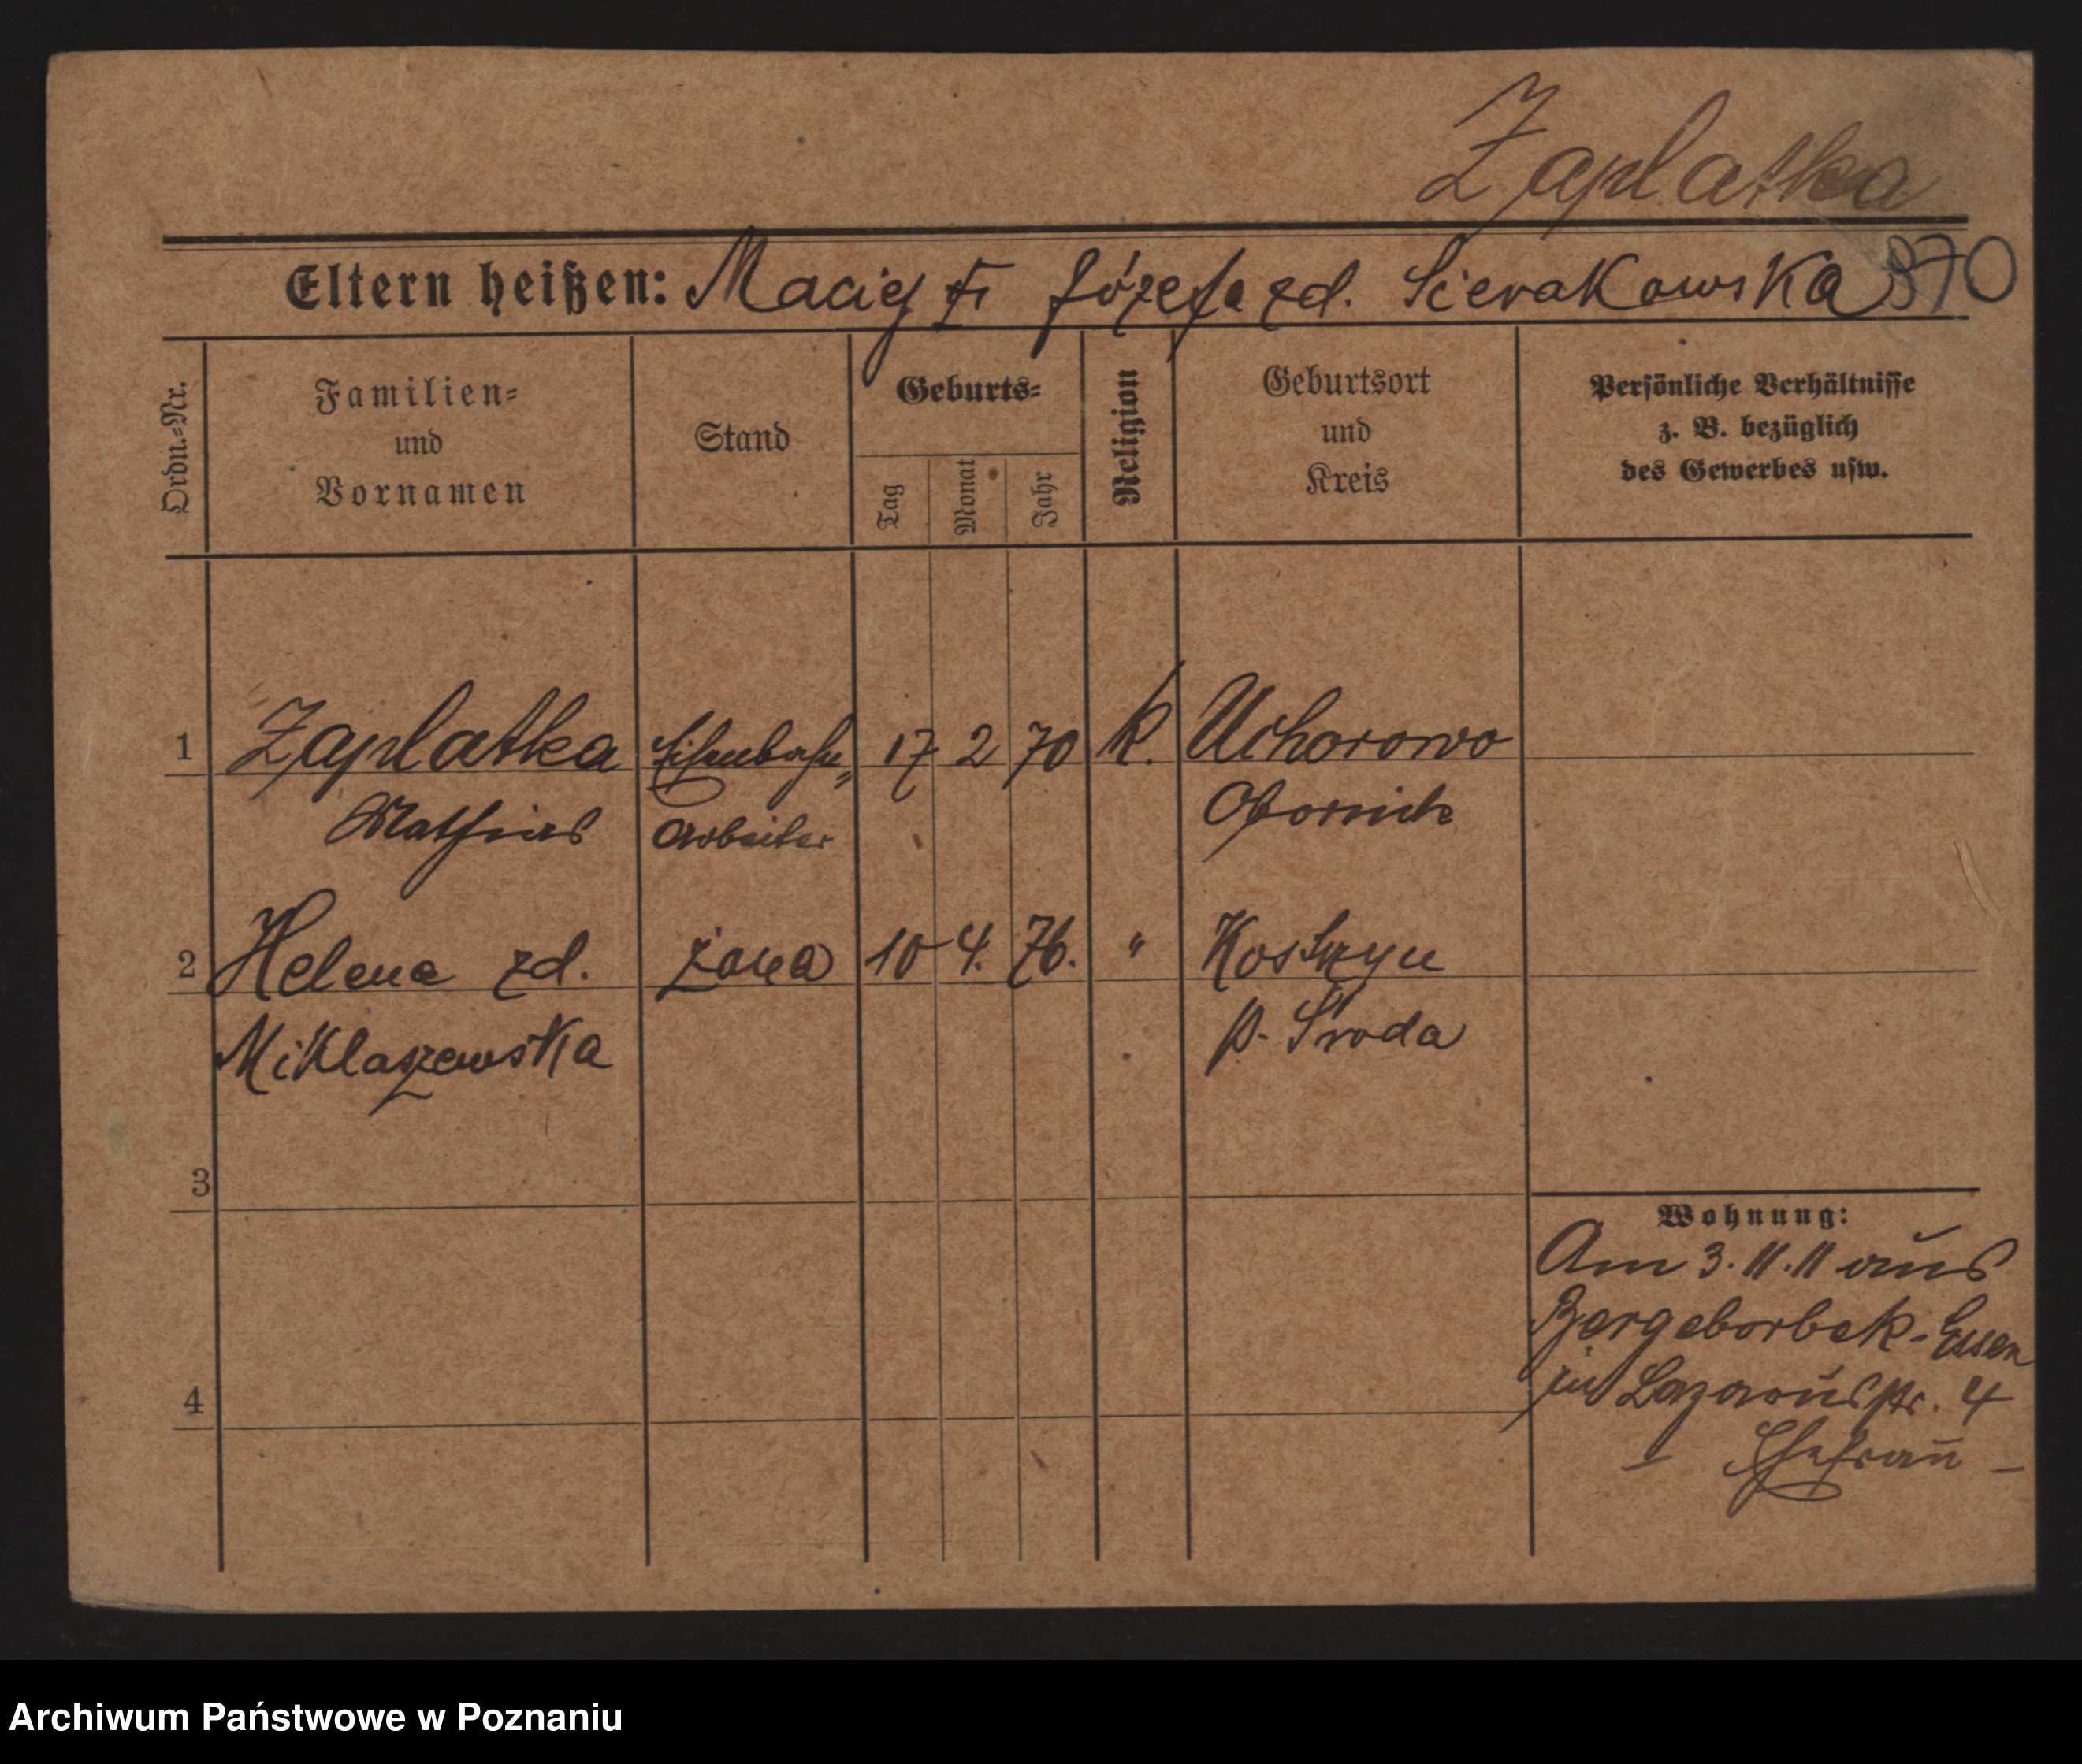 Zaplatka
Eltern heißen: Maciej Józefa zd. Sierakowska 370
Ordn.=Nr.
Familien=
und
Vornamen
Stand
Geburts=
Tag
Monat
Jahr
Religion
Geburtsort
und
Kreis
Persönliche Verhältnisse
z. B. bezüglich
des Gewerbes usw.
1 Zaplatka Eisenbahn„ 17 2 70 k. Uchorowo
Mathias Arbeiter Obornick
2 Helena zd. żona 10 4. 76. " Kostrzyn
Miklaszewska p. Środa
3
Wohnung:
Am 3.11.11 aus
Bergeborbek-Essen
in Lazarusstr. 4
4
- Ehefrau -
Archiwum Państwowe w Poznaniu